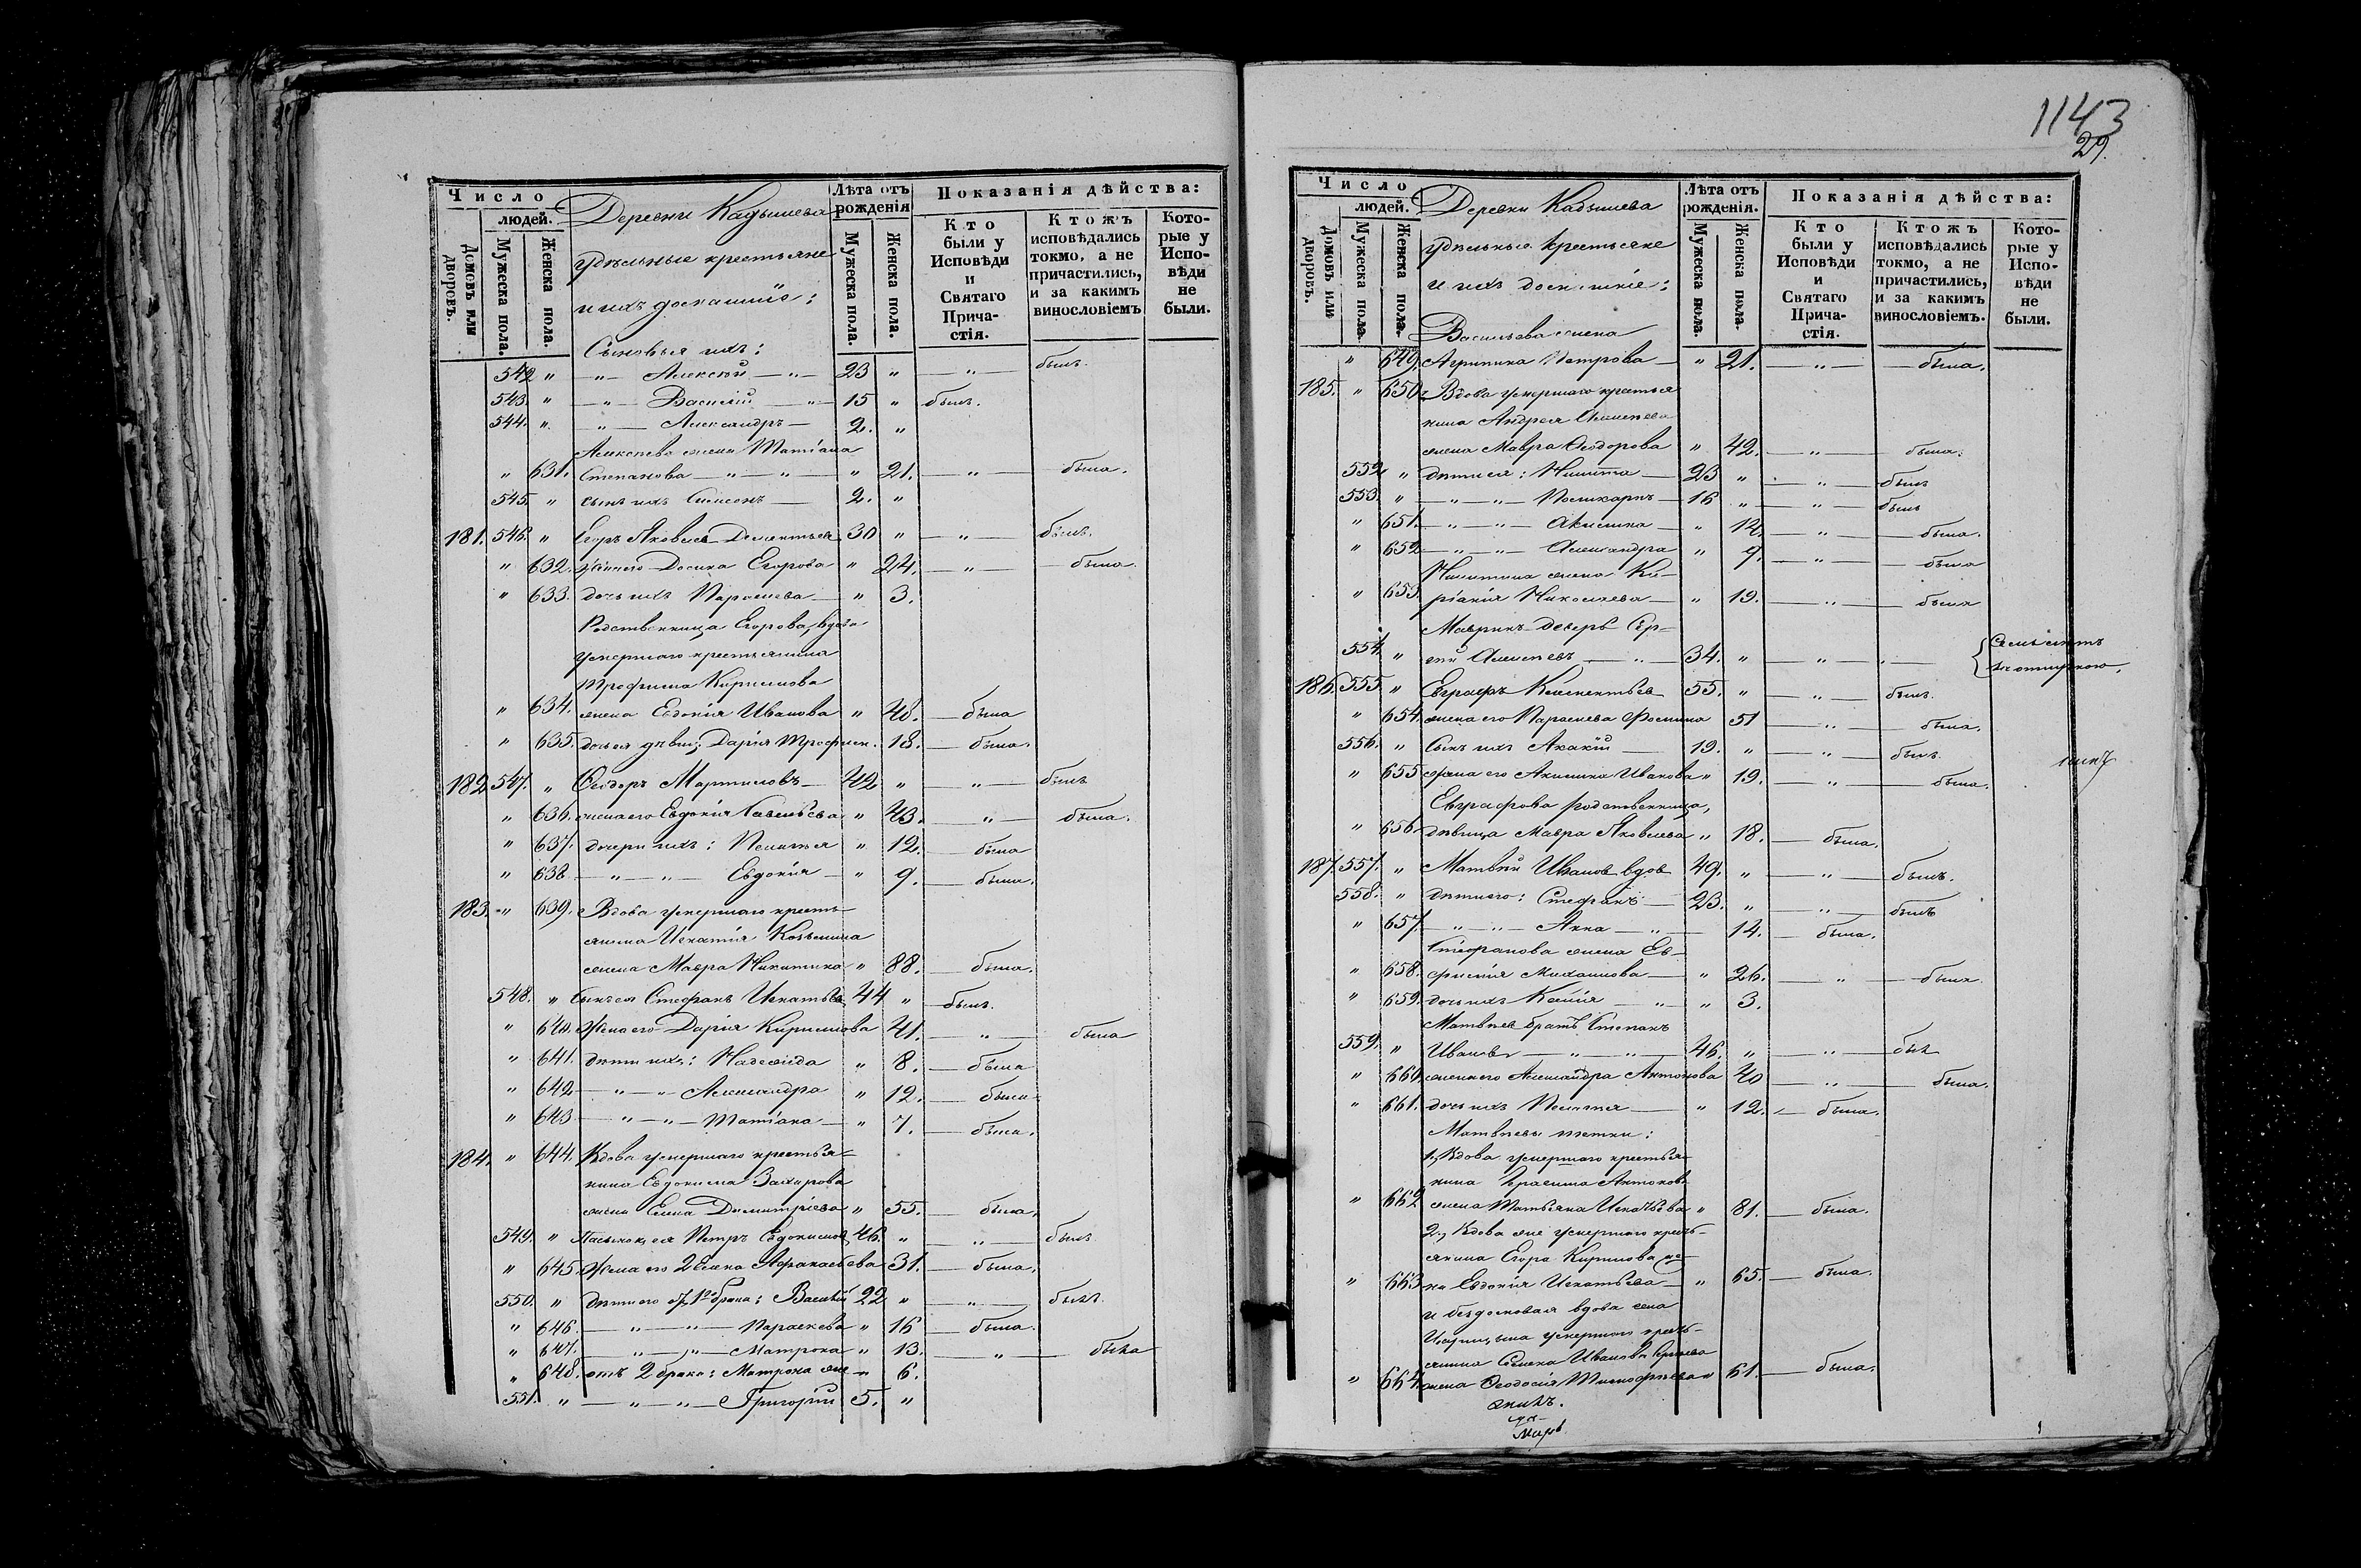 1143
29.
Число
людей.
Домовъ или дворовъ.
Мужеска пола.
Женска пола.
Деревни Кадышева
удѣльные крестьяне
и ихъ домашніе:
Лѣта отъ рожденія
Мужеска пола.
Женска пола.
Показанія дѣйства:
Кто были у Исповѣди и Святаго Причастія.
Ктожъ исповѣдались токмо, а не причастились, и за какимъ винословіемъ
Которые у Исповѣди не были.
Сыновья ихъ:
542 " — " — Алексѣй — " — 23 " — " — былъ.
543. " — " — Василій — " — 15 " былъ.
544. " — " — Александръ — 2. "
Алексѣева жена Татіана
" 631. Степанова — " — " — " 21. — " — была.
545. " сынъ ихъ Симеонъ — 2. "
181. 546. " Егоръ Яковлевъ Дементьевъ 30 " — " — былъ.
" 632. жена его Домна Егорова " 24. — " — была.
" 633. дочь ихъ Параскева — " 3.
Родственница Егорова, вдова
умершаго крестьянина
Трофима Кириллова
" 634. жена Евдокія Иванова " 48. — была
" 635. дочь ея дѣвица Дарія Трофим. 18. — была.
182. 547. " Ѳеодоръ Мартиновъ — 42 " — " — былъ
" 636. жена его Евдокія Савельева " 43. — " — была.
" 637. дочери ихъ: Пелагея " 12. — была
" 638 — " — " — Евдокія — " 9. — была.
183. " 639. Вдова умершаго кресть-
янина Игнатія Козьмина
жена Мавра Никитина " 88. — была.
548. " Сынъ ея Стефанъ Игнатьевъ 44 " — былъ.
" 640. Жена его Дарія Кириллова 41. — " — была
" 641. дѣти ихъ: Надежда " 8. — была
" 642 — " — " — Александра " 12. — была
" 643 — " — " — Татіана — " 7. — была.
184. " 644. Вдова умершаго крестья-
нина Евдокима Захарова
жена Елена Димитріева " 55. — была.
549. " Пасынокъ ея Петръ Евдокимовъ 46. " — " — былъ
" 645. Жена его 2 Елена Аѳанасьева 31. — была.
550. " дѣти его отъ 1го брака: Василій 22 " — " — былъ.
" 646. — " — " — Параскева " 16 — была.
" 647. — " — " — Матрона " 13. — " — была
" 648. отъ 2 брака: Матрона же " 6.
551. " — " — " — Григорій 5. "
Число
людей.
Домовъ или дворовъ.
Мужеска пола.
Женска пола.
Деревни Кадышева
удѣльные крестьяне
и ихъ домашніе:
Лѣта отъ рожденія.
Мужеска пола.
Женска пола.
Показанія дѣйства:
Кто были у Исповѣди и Святаго Причастія.
Ктожъ исповѣдались токмо, а не причастились, и за какимъ винословіемъ.
Которые у Исповѣди не были.
Васильева жена
" 649. Агрипина Петрова — " 21. — " — была.
185. " 650. Вдова умершаго крестья
нина Андрея Алексѣева
жена Мавра Ѳеодорова " 42. — " — была.
552 " дѣти ея: Никита — 23 " — " — былъ
553. " — " — " — Поликарпъ — 16 " — " — былъ
" 651. — " — " — Акилина — " 12. — " — была.
" 652 — " — " — Александра " 9. — " — была
Никитина жена Ки-
" 653. ріакія Николаева — " 19. — " — была
Мавринъ деверь Сер-
554. " гій Алексѣевъ — " — 34. " — " —
186. 555 " Евграфъ Климентьевъ 55. " — " — былъ.
" 654. жена его Параскева Фомина 51 — " — была.
556. " Сынъ ихъ Акакій — 19. " — " — былъ.
" 655 жена его Акилина Иванова " 19. — " — была.
Евграфова родственница,
" 656. дѣвица Мавра Яковлева " 18. — была.
187. 557. " Матвѣй Ивановъ вдов 49. " — " — былъ.
558. " дѣти его: Стефанъ — 23. " — " — былъ
" 657. — " — " — Анна — " — 14. — была.
Стефанова жена Ев-
" 658. фимія Михаилова — " 26. — " — была.
" 659. дочь ихъ Ксенія — " — " 3.
Матвѣевъ братъ Степанъ
559. " Ивановъ — " — " — 46. " — " — былъ
" 660. жена его Александра Антонова 40 — " — была.
" 661. дочь ихъ Пелагея — " 12. — была.
Матвѣевы тетки:
1., Вдова умершаго крестья-
нина Герасима Антонова
" 662 жена Татьяна Игнатьева " 81. — была.
2., Вдова же умершаго кресть-
янина Егора Кириллова же-
" 663 на Евдокія Игнатьева — " 65. — была.
и бездомовая вдова села
умершаго кресть-
янина Семена Иванова
" 664. жена Ѳеодосія Тимофѣева " 61. — была.